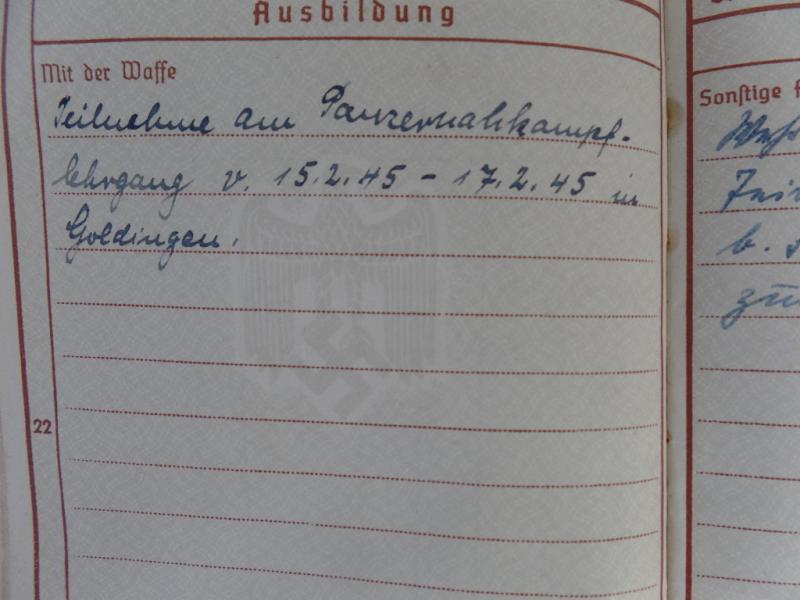 Ausbildung
Mit der Waffe
Teilnehme am Panzernahkampf-
lehrgang v. 15.2.45 - 17.2.45 in
Goldingen.
22
Sonstige
b.